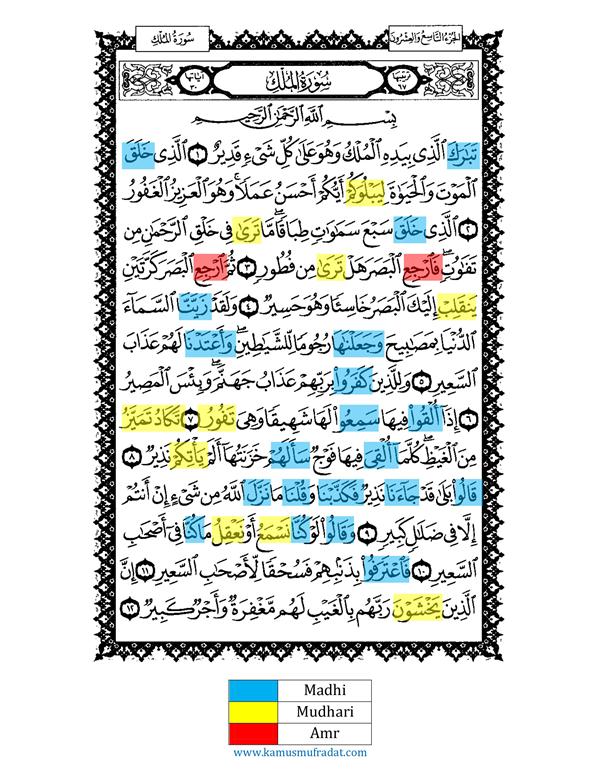 الجزء التاسع والعشرون
سورة الملك
رتبتها ٦٧
سُورَةُ المُلْكِ
آياتها ٣٠
بِسْمِ اللَّهِ الرَّحْمَٰنِ الرَّحِيمِ
تَبَٰرَكَ ٱلَّذِى بِيَدِهِ ٱلْمُلْكُ وَهُوَ عَلَىٰ كُلِّ شَىْءٍ قَدِيرٌ ١ ٱلَّذِى خَلَقَ
ٱلْمَوْتَ وَٱلْحَيَوٰةَ لِيَبْلُوَكُمْ أَيُّكُمْ أَحْسَنُ عَمَلًا ۚ وَهُوَ ٱلْعَزِيزُ ٱلْغَفُورُ
٢ ٱلَّذِى خَلَقَ سَبْعَ سَمَٰوَٰتٍ طِبَاقًا ۖ مَّا تَرَىٰ فِى خَلْقِ ٱلرَّحْمَٰنِ مِن
تَفَٰوُتٍ ۖ فَٱرْجِعِ ٱلْبَصَرَ هَلْ تَرَىٰ مِن فُطُورٍ ٣ ثُمَّ ٱرْجِعِ ٱلْبَصَرَ كَرَّتَيْنِ
يَنقَلِبْ إِلَيْكَ ٱلْبَصَرُ خَاسِئًا وَهُوَ حَسِيرٌ ٤ وَلَقَدْ زَيَّنَّا ٱلسَّمَآءَ
ٱلدُّنْيَا بِمَصَٰبِيحَ وَجَعَلْنَٰهَا رُجُومًا لِّلشَّيَٰطِينِ ۖ وَأَعْتَدْنَا لَهُمْ عَذَابَ
ٱلسَّعِيرِ ٥ وَلِلَّذِينَ كَفَرُوا۟ بِرَبِّهِمْ عَذَابُ جَهَنَّمَ ۖ وَبِئْسَ ٱلْمَصِيرُ
٦ إِذَآ أُلْقُوا۟ فِيهَا سَمِعُوا۟ لَهَا شَهِيقًا وَهِىَ تَفُورُ ٧ تَكَادُ تَمَيَّزُ
مِنَ ٱلْغَيْظِ ۖ كُلَّمَآ أُلْقِىَ فِيهَا فَوْجٌ سَأَلَهُمْ خَزَنَتُهَآ أَلَمْ يَأْتِكُمْ نَذِيرٌ ٨
قَالُوا۟ بَلَىٰ قَدْ جَآءَنَا نَذِيرٌ فَكَذَّبْنَا وَقُلْنَا مَا نَزَّلَ ٱللَّهُ مِن شَىْءٍ إِنْ أَنتُمْ
إِلَّا فِى ضَلَٰلٍ كَبِيرٍ ٩ وَقَالُوا۟ لَوْ كُنَّا نَسْمَعُ أَوْ نَعْقِلُ مَا كُنَّا فِىٓ أَصْحَٰبِ
ٱلسَّعِيرِ ١٠ فَٱعْتَرَفُوا۟ بِذَنۢبِهِمْ فَسُحْقًا لِّأَصْحَٰبِ ٱلسَّعِيرِ ١١ إِنَّ
ٱلَّذِينَ يَخْشَوْنَ رَبَّهُم بِٱلْغَيْبِ لَهُم مَّغْفِرَةٌ وَأَجْرٌ كَبِيرٌ ١٢
Madhi
Mudhari
Amr
www.kamusmufradat.com